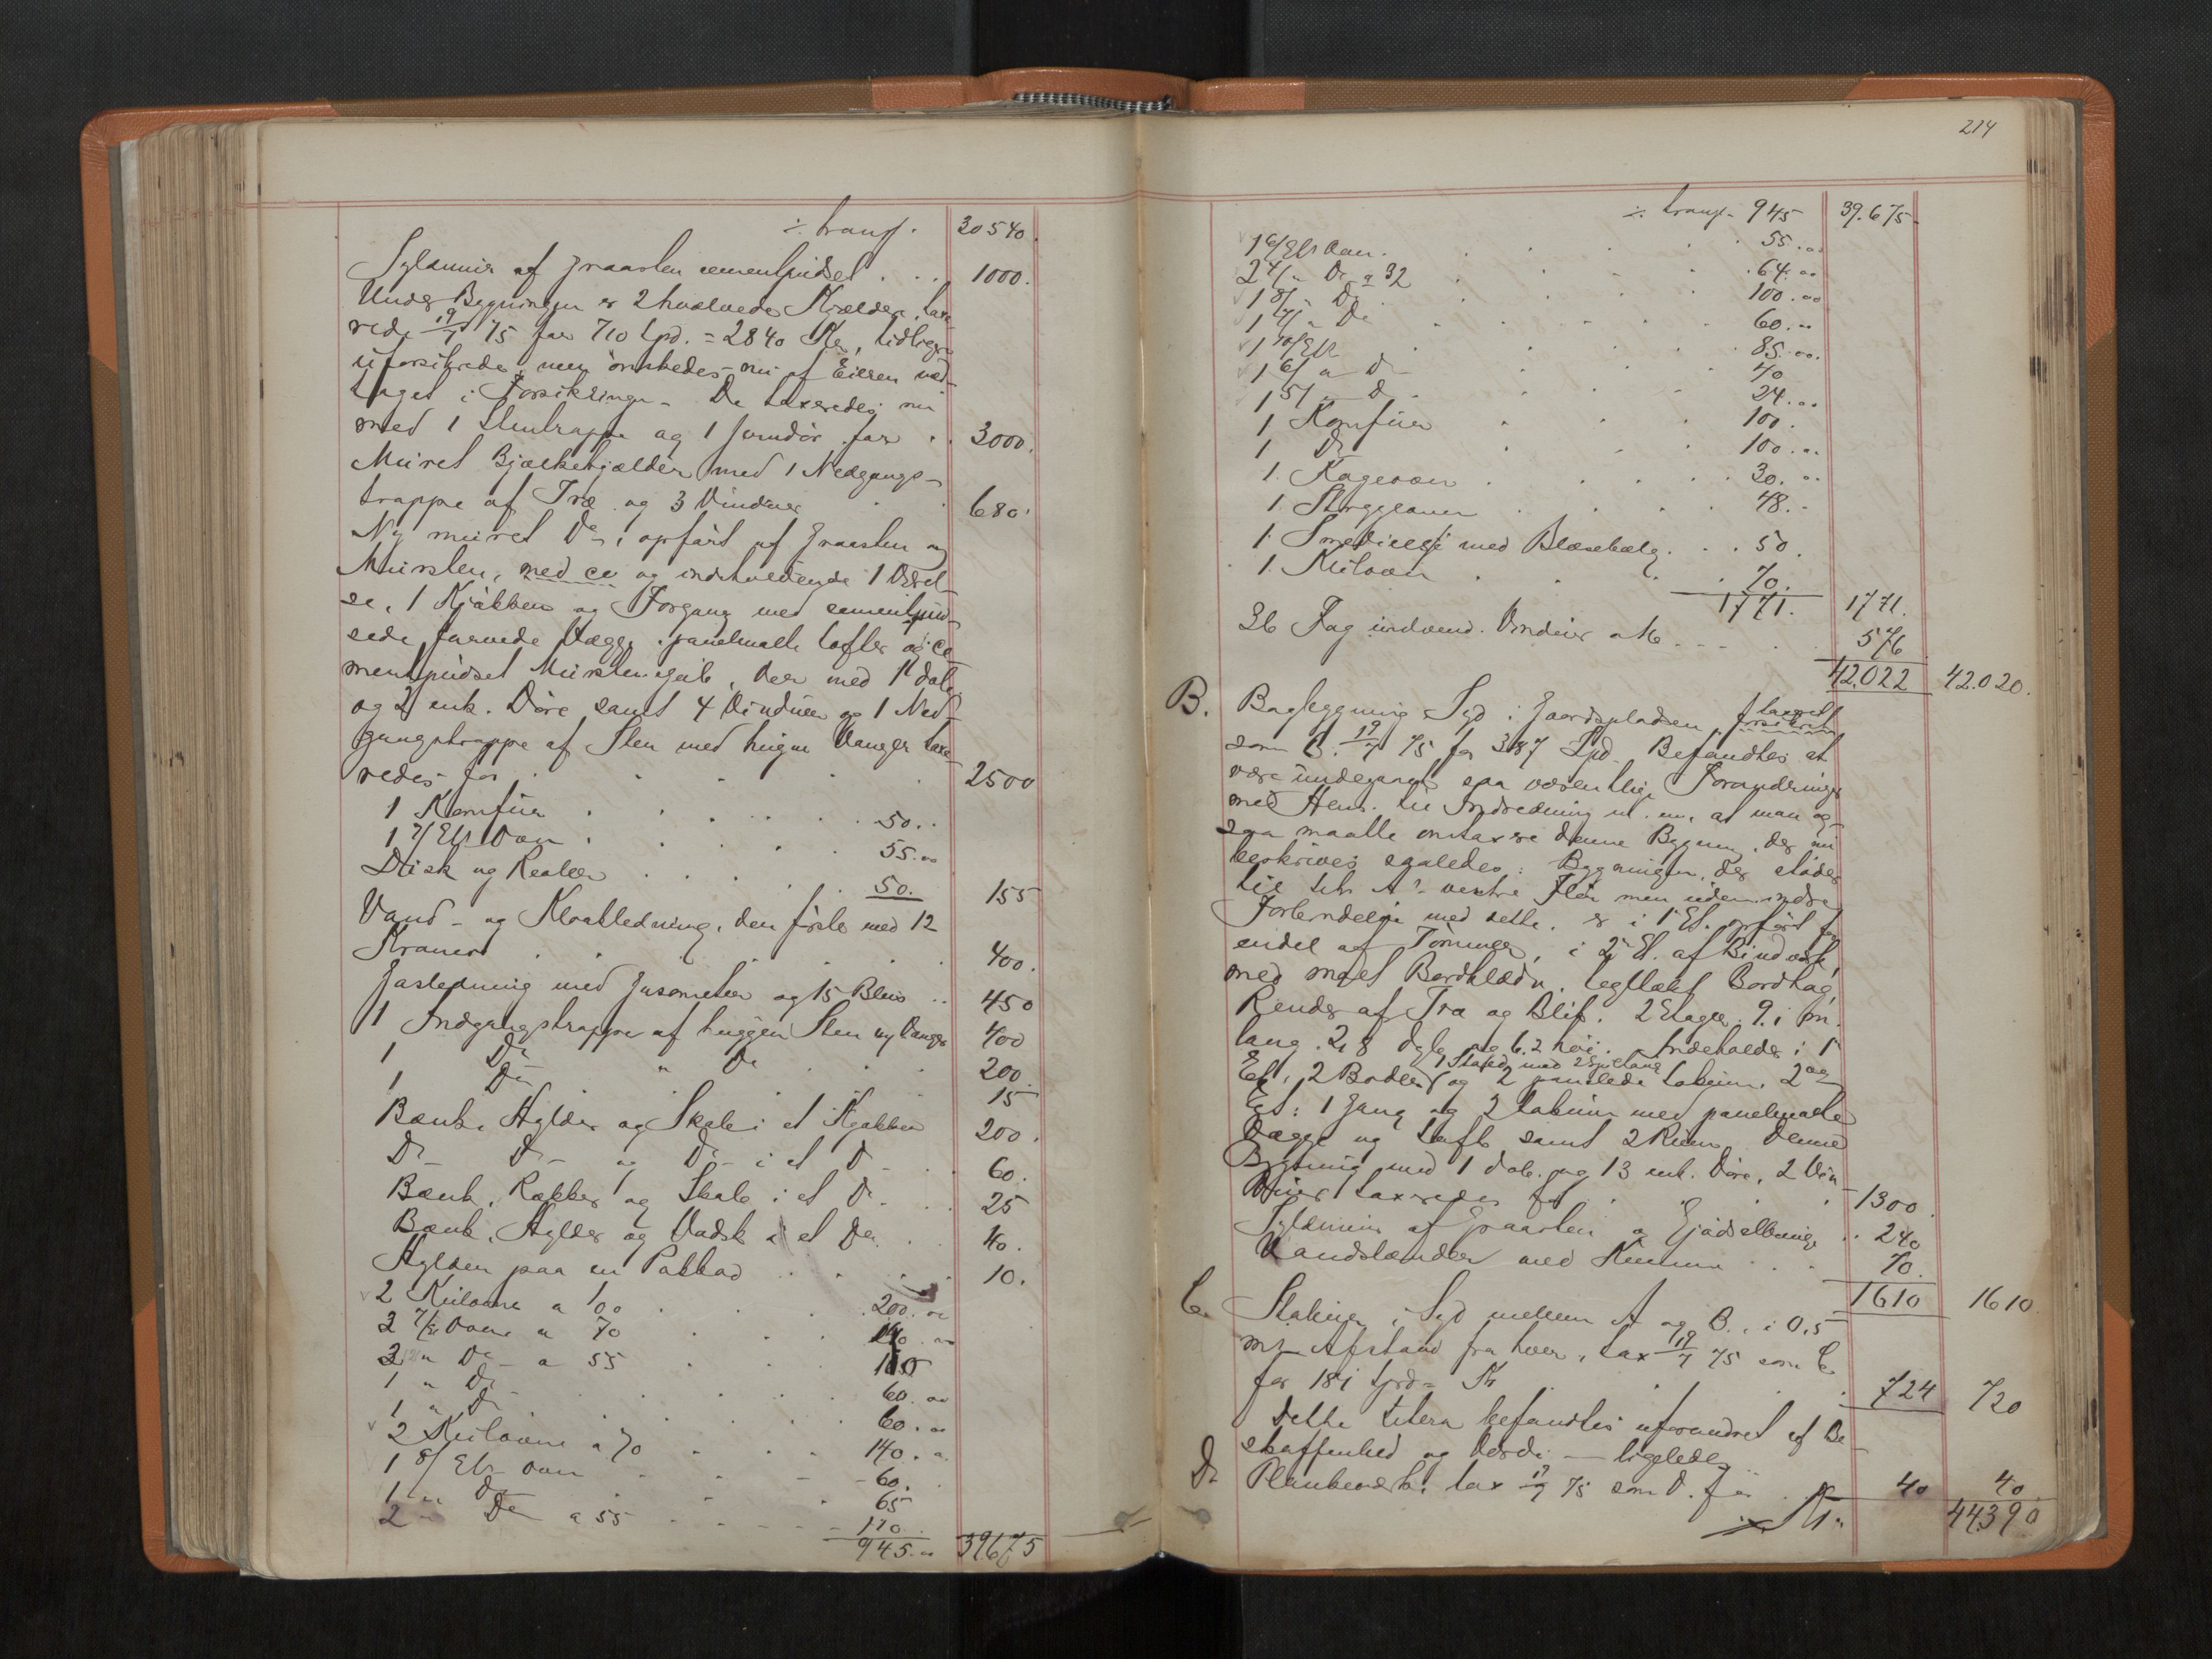 ÷ transp. 30540.
Sylmuur af Graasten cementpudset . . . 1000.
Under Bygningen er 2 hvælvede Kjældere, taxe-
rede 19/7 75 for 710 Spd. = 2840 Kr, tidligere
uforsikrede, men önskedes nu af Eieren med-
taget i Forsikringen. De taxeredes nu
med 1 Stentrappe og 1 Jerndör for . . 3000.
Muret Bjælkekjælder med 1 Nedgangs-
trappe af Træ og 3 Vinduer . . 680.
Ny muret Do, opfört af Graasten og
Mursten, med ce og indeholdende 1 Værel-
se, 1 Kjökken og Forgang med cementpud-
sede farvede Vægge, panelmalte Lofter og ce-
mentpudset Murstensgulv, Den med 1 dob.
og 2 enk. Döre samt 4 Vinduer og 1 Ned-
gangstrappe af Sten med hugne Vanger taxe-
redes for . . . . 2500
1 Komfur . . . . . 50. .
1 7/ Etg Ovn . . . . . 55. 00
Disk og Reoler . . . . . 50. 155
Vand- og Kloakledning, den förste med 12
Kraner . . . . . 400.
Gasledning med Gasometer og 15 Blus . . 450
1 Indgangstrappe af huggen Sten og Vanger 400
1 Do " Do . . . 200.
1 Do . . . . 15
Bænk, Hylder og Skab i et Kjökken 200.
Do Do og Do i et Do . . 60.
Bænk, Rækker og Skab i et Do . . 25
Bænk, Hylder og Vadsk i et Do . . 40.
Hylder paa en Pakbod . . . . 10.
2 Kulovne a 100 . . . 200. 00
2 7/Et Ovne a 70 . . . 140. 00
3 " Do a 55 . . . 165
1 " Do . . . . 60. 00
1 " Do . . . . 60. 00
2 Kulovne a 70 . . . 140. 0
1 8/ Etg Ovn . . . 60. .
1 " Do . . . 65
2 " Do a 55 . . . 110. .
945. 00 39675
214
÷ transp. 945 39.675
1 6/Etg Ovn . . . . 55. 00
2 4/ " Do a 32 . . . 64. 00
1 8/ " Do . . . . 100. 00
1 7/ " Do . . . . 60. 00
1 10/Etg . . . . 85. 00.
1 6/ " Do . . . . 40
1 5/ " Do . . . . 24. 00
1 Komfur . . . 100.
1 Do . . . 100. 00
1. Kageovn . . . . 30. 00
1. Strygeovn . . . . 48. -
1. Smedieesse med Blæsebælg . . . 50.
1. Kulovn . . . . 70.
1771. 1771.
36 Fag indvend. Vinduer a 16 - - - . . 576
42.022 42.020.
B. Bagbygning Syd i Gaardspladsen, taxeret forsikret
som B. 19/7 75 for 387 Spd. Befandtes at
være undergaaet saa væsentlige Forandringer
med Hens. til Indredning m. m., at man og-
saa maatte omtaxere denne Bygning, der nu
beskrives saaledes: Bygningen, der stöder
til Litr A's vestre Flöi men uden indre
Forbindelse med dette, er i 1ste Et. opfört for
endel af Tömmer, i 2den Et. af Bindværk,
med malet Bordklædn. tegltækt Bordtag,
Render af Træ og Blik. 2 Etager. 9.1 m.
lang. 2,8 dyb og 6.2 höi. Indeholder i 1ste
Et. 2 Boder, 1 Stald med 2 Spiltoug og 2 panelede Lokum. 2den
Et: 1 Gang og 2 Lokum med panelmalte
Vægge og Lofte samt 2 Rum. Denne
Bygning med 1 dob. og 13 enk. Döre, 2 Vin-
duer taxeredes for . . . . 1300.
Sylmuur af Graasten og Gjödselbinge . . 240
Vandstænder med Kumme . . . 70.
1610 1610
C. Staburet i Syd mellem A og B. i 0,5
mtr Afstand fra hver, tax 19/7 75 som C.
for 181 Spd = Kr . . . . 724 720
Dette Litera befandtes uforandret af Be-
skaffenhed og Værdi — ligeledes
D. Plankeværket tax 19/7 75 som D. for . 40 40
÷ Kr. 44390